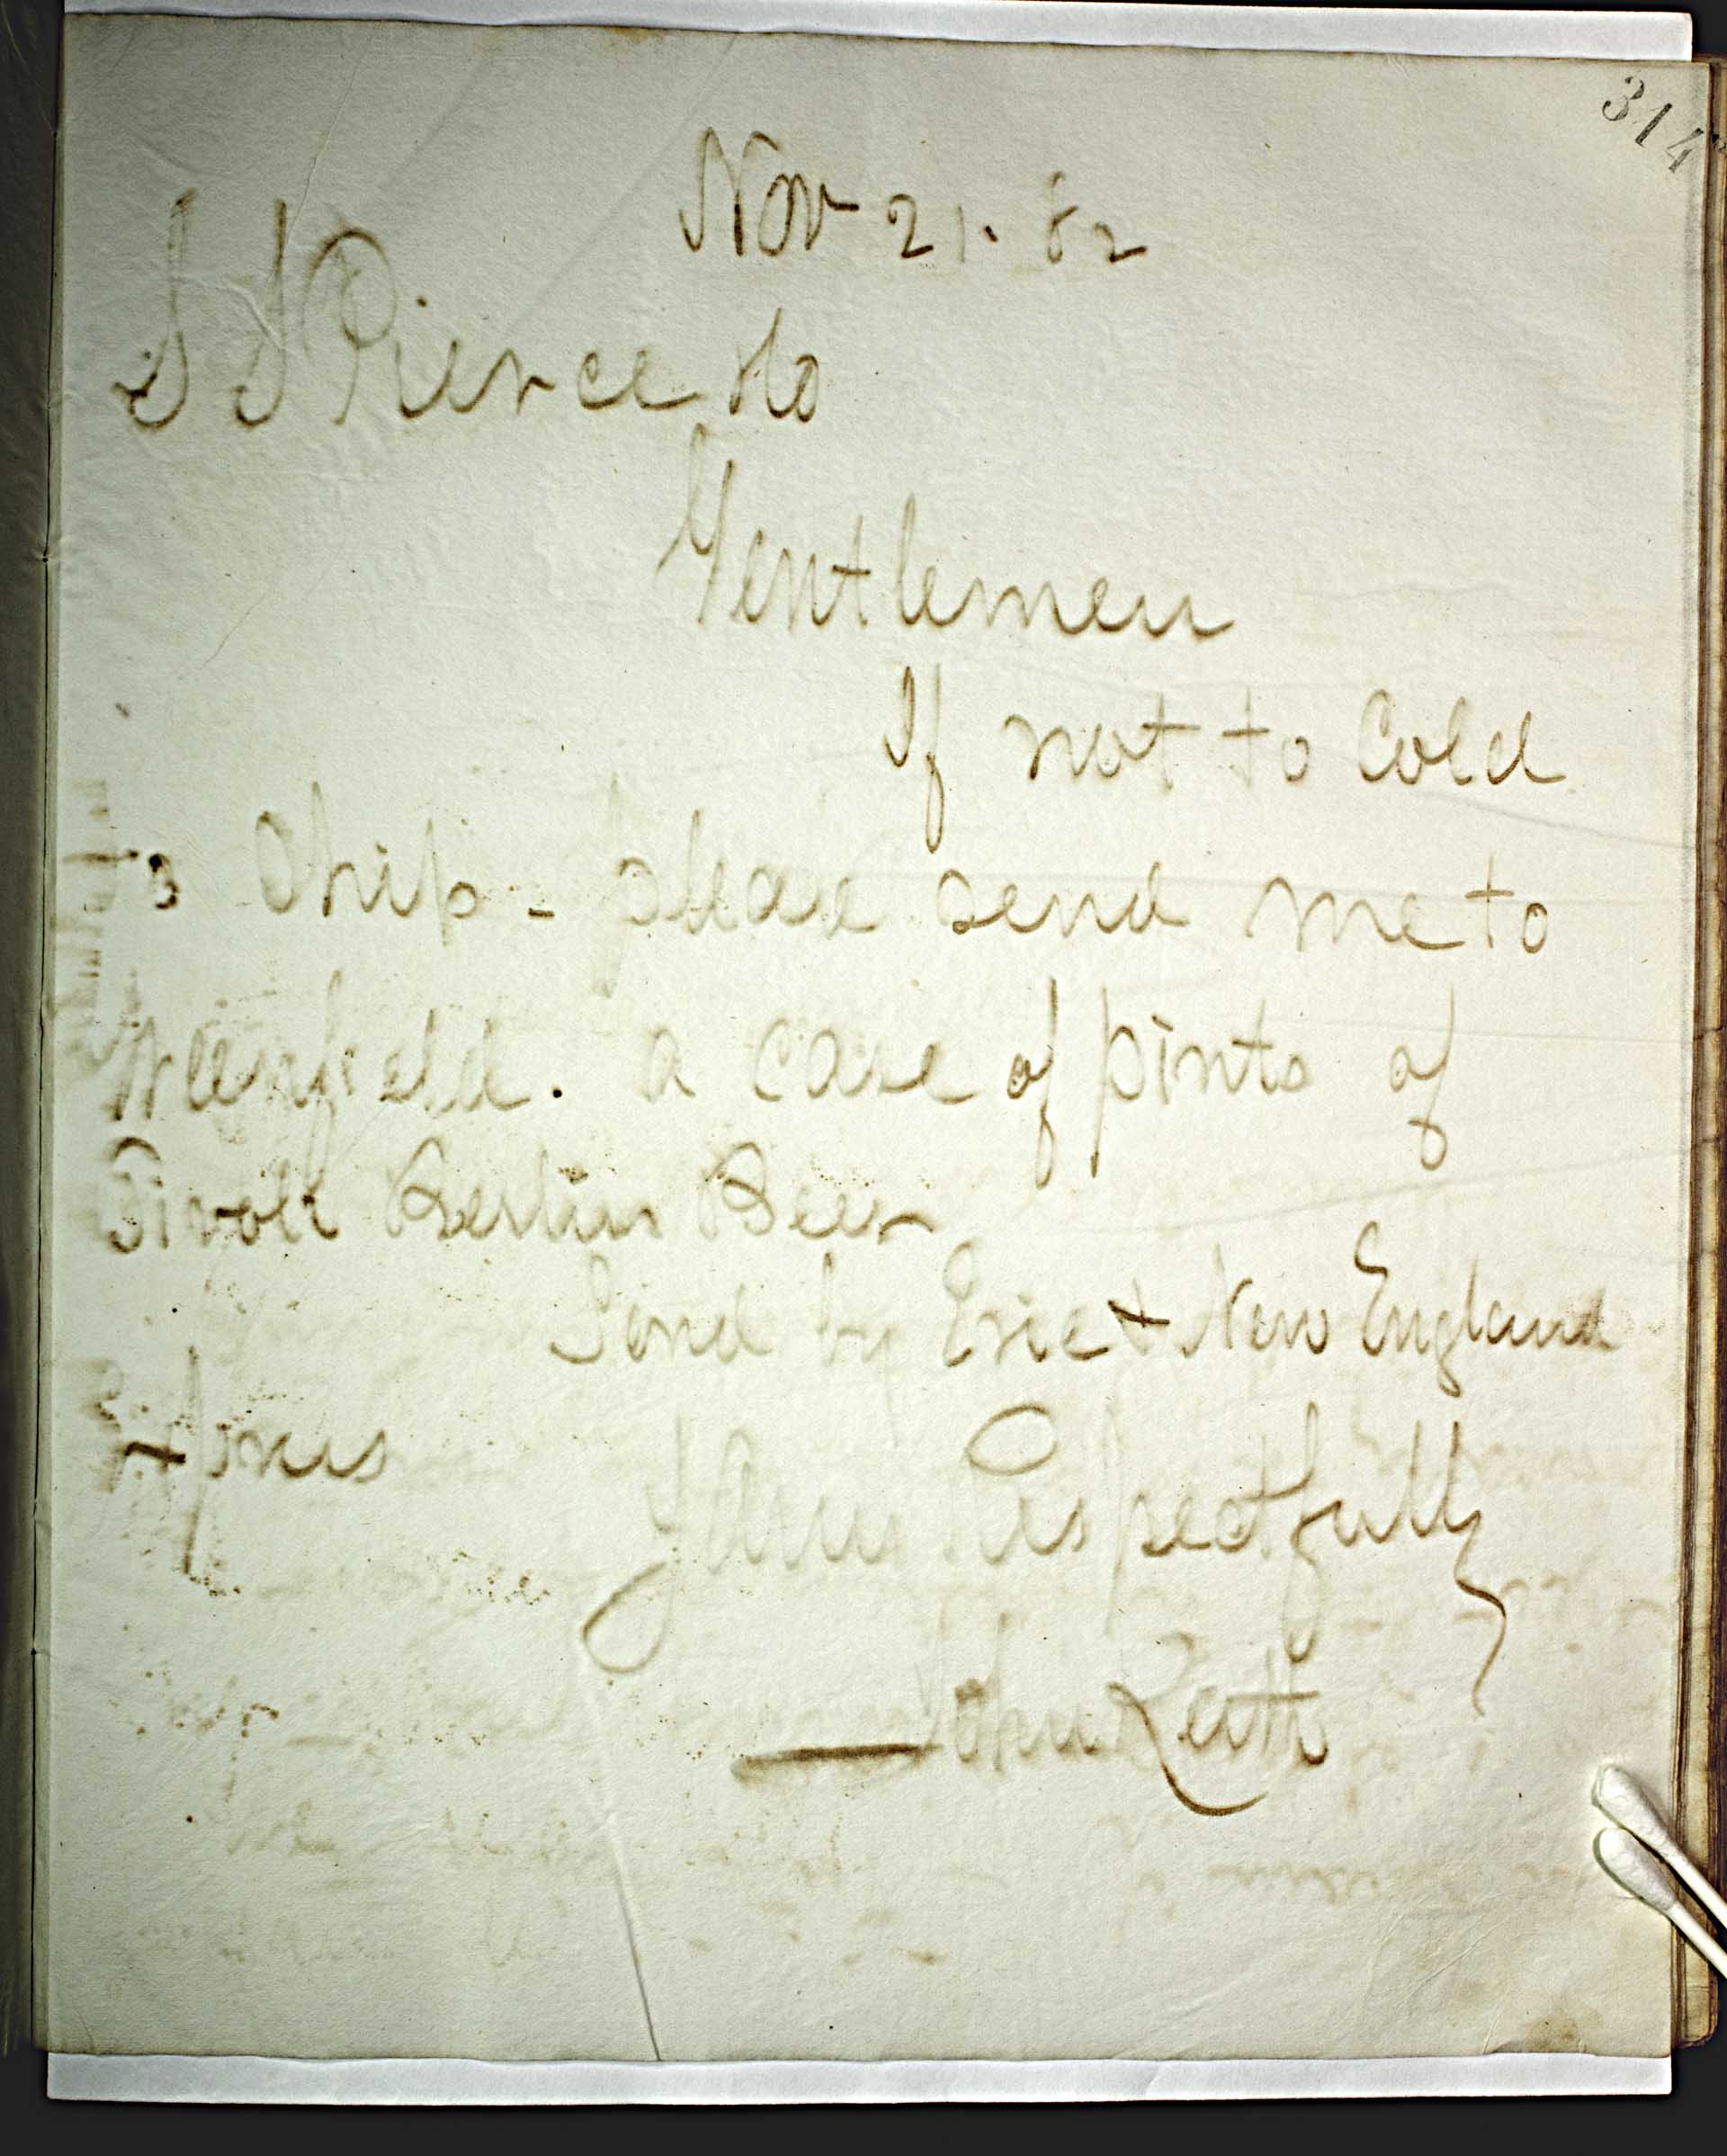 314
Nov 21. 82
S S Pierce & Co
Gentlemen
If not to Cold
to Ship - please send me to
Greenfield. a case of pints of
Tivoli Berlin Beer
Send by Erie & New England
Express
Yours Respectfully
John